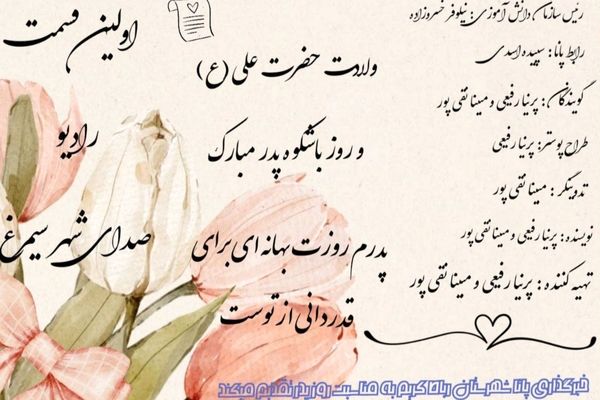 رئیس سازمان دانش آموزی: نیلوفر خسروزاده
رابط پانا: سپیده اسدی
گویندگان: پرنیا رفیعی و مبینا تقی پور
طراح پوستر: پرنیا رفیعی
تدوینگر: مبینا تقی پور
نویسنده: پرنیا رفیعی و مبینا تقی پور
تهیه کننده: پرنیا رفیعی و مبینا تقی پور
ولادت حضرت علی (ع)
و روز باشکوه پدر مبارک
پدرم روزت بهانه ای برای
قدردانی از توست
اولین قسمت
رادیو
صدای شهر سیمرغ
خبرگذاری پانا شهرستان رباط کریم به مناسبت روز پدر تقدیم میکند